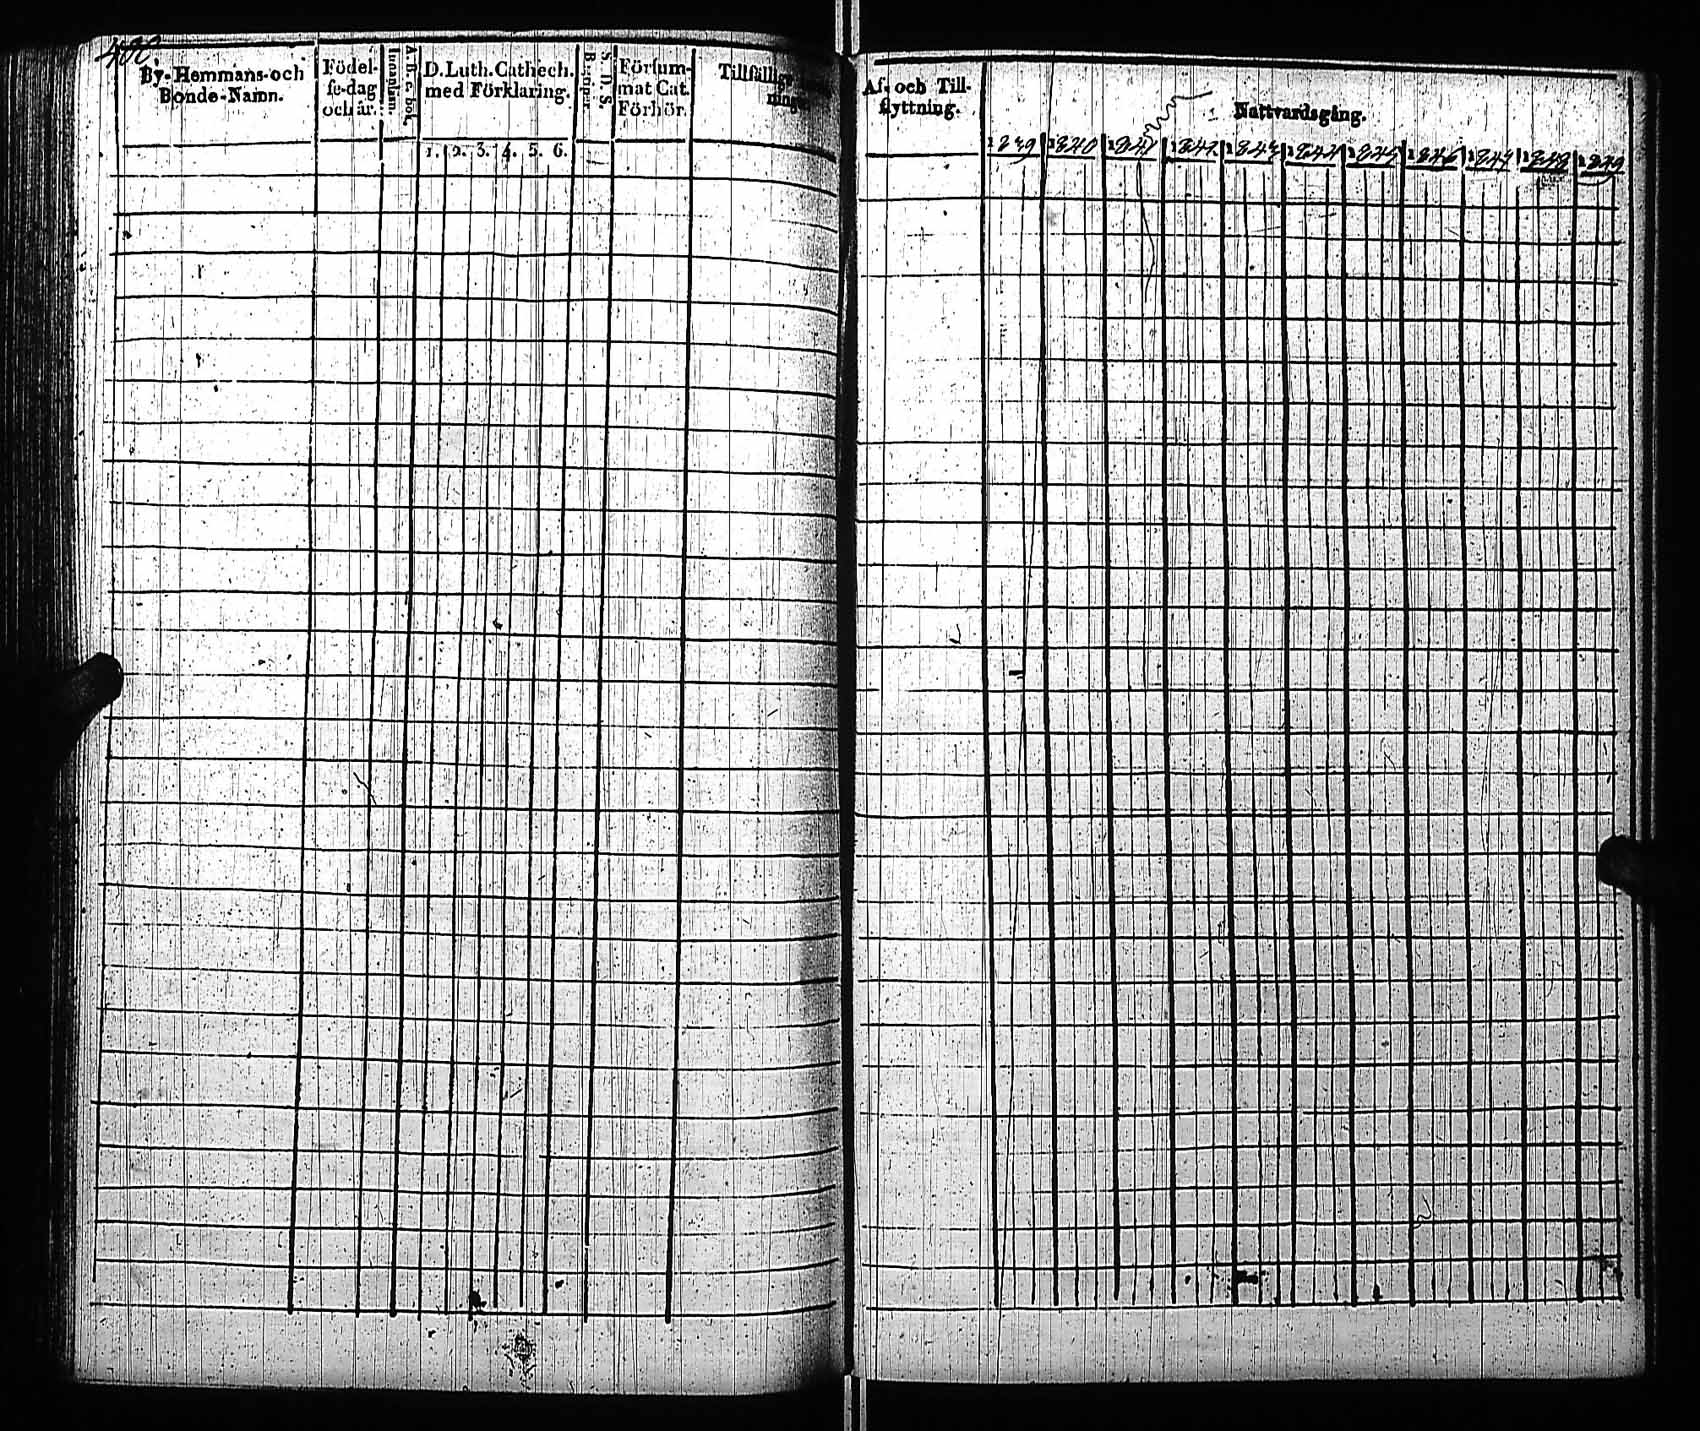 400
By- Hemmans- och
Bonde-Namn.
Födel-
se-dag
och år.
A. B. c. bok.
Innanläsn.
D. Luth. Cathech.
med Förklaring.
1. 2. 3. 4. 5. 6.
S. D. S.
Begrper.
Försum-
mat Cat.
Förhör.
Af- och Till-
flyttning.
Nattvardsgång.
1839 1840 1841 1842 1843 1844 1845 1846 1847 1848 1849